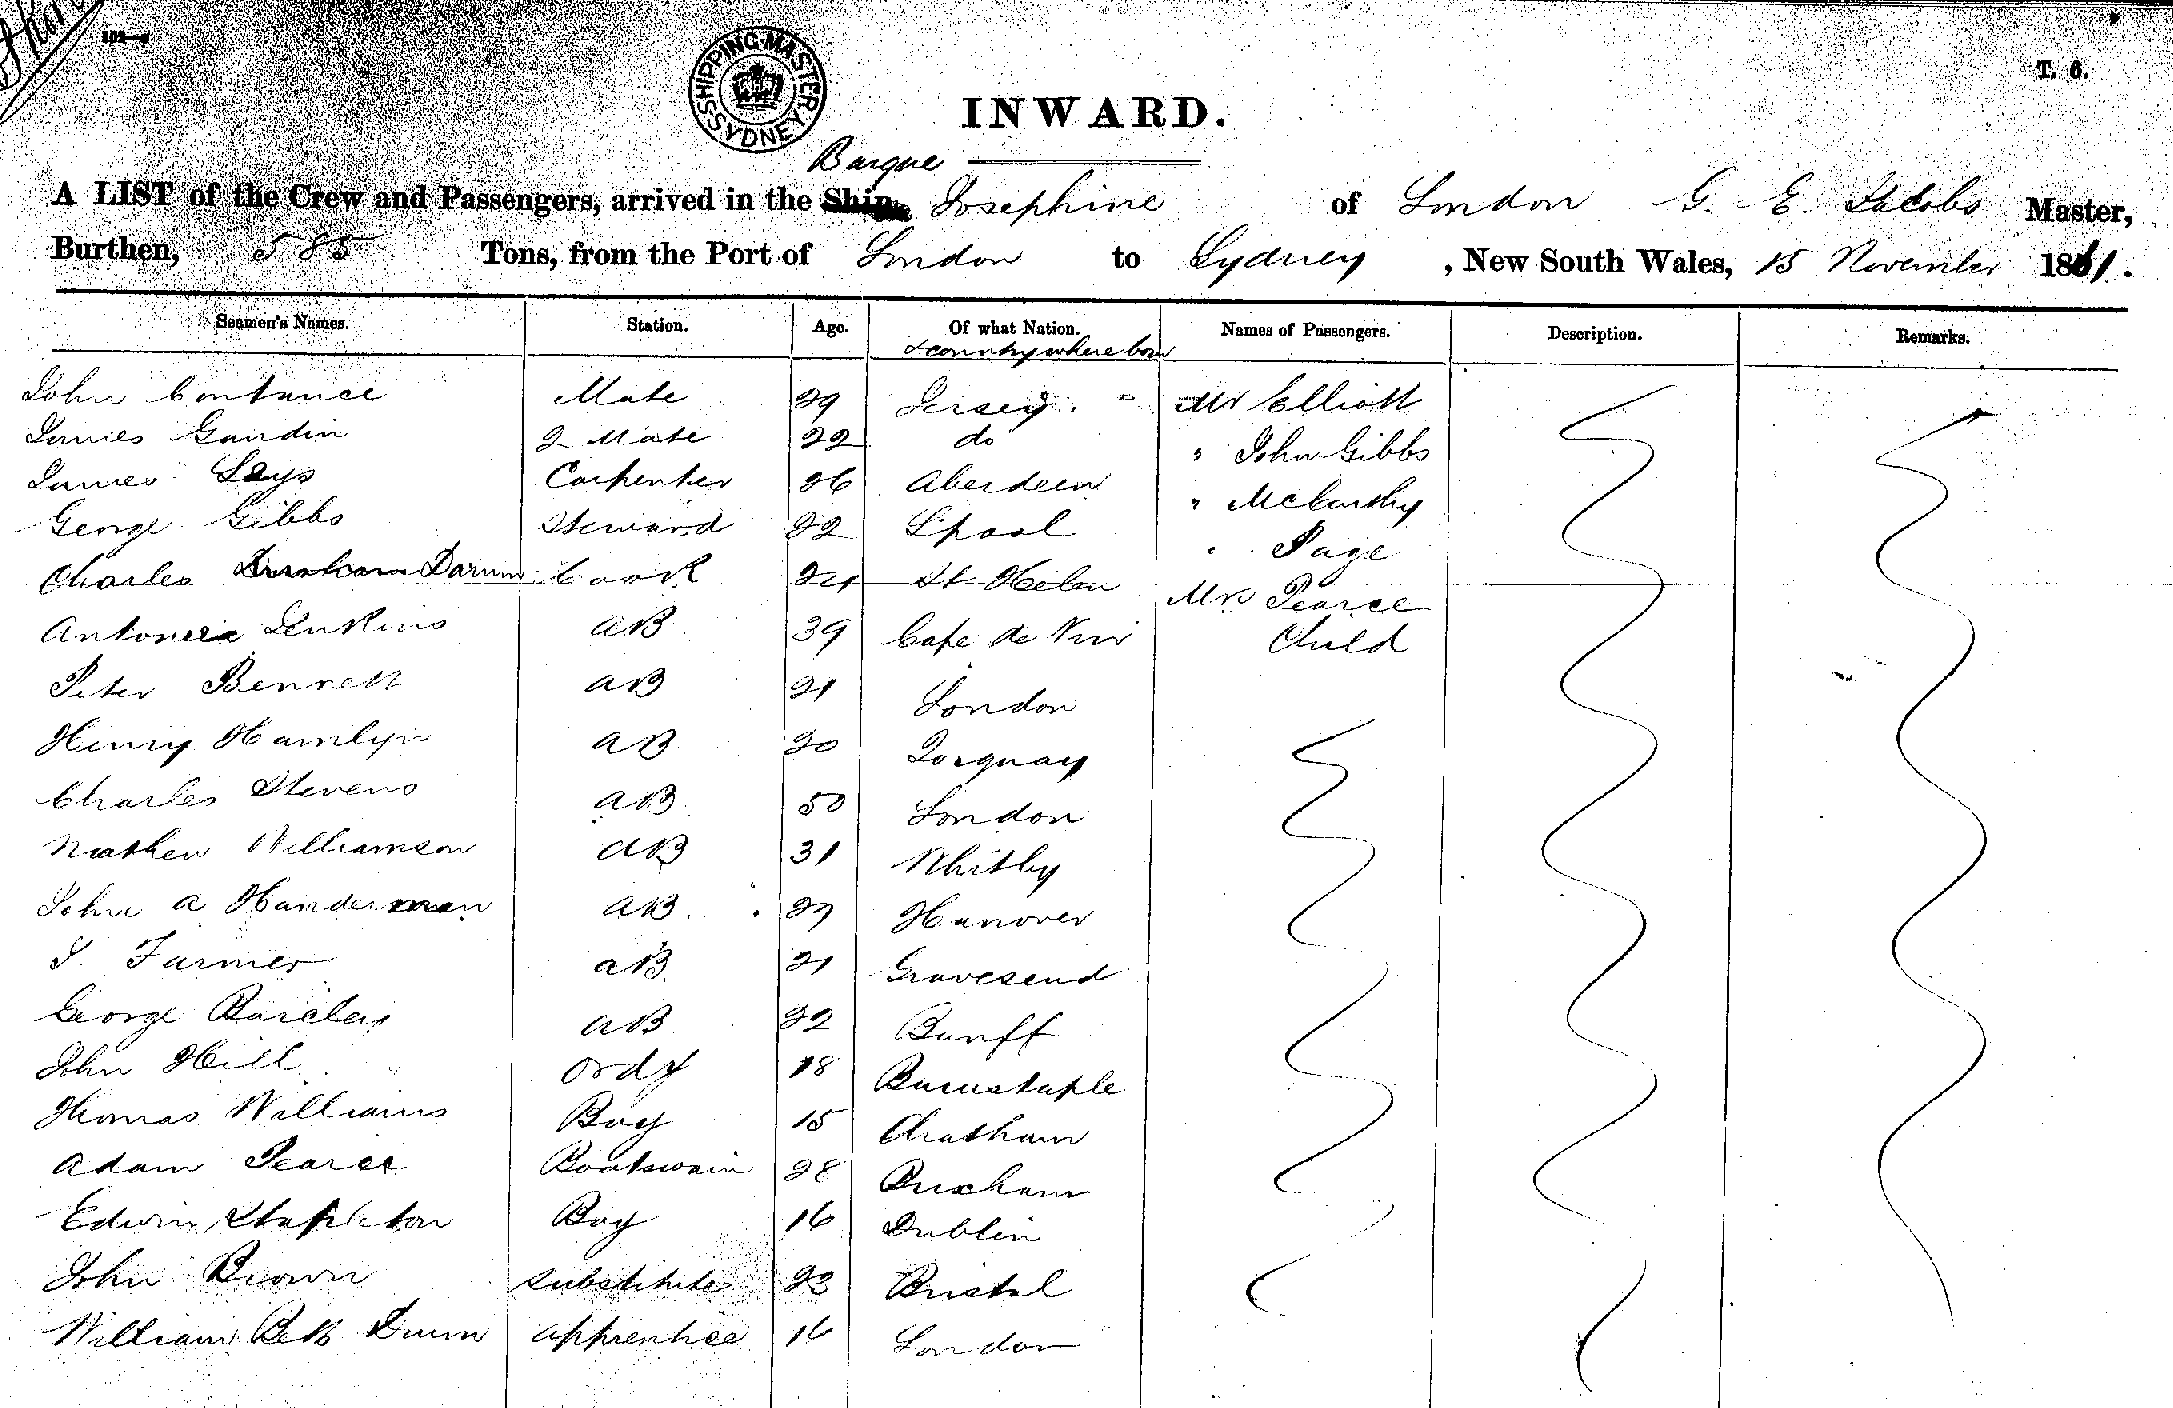 SHIPPING MASTER SYDNEY
T. 6.
INWARD.
Barque
A LIST of the Crew and Passengers, arrived in the Ship Josephine of London G. E. Jacobs Master,
Burthen, 585 Tons, from the Port of London to Sydney, New South Wales, 15 November 1861.
Seamen's Names. Station. Age. Of what Nation. Names of Passengers. Description. Remarks.
& country where born
John Contance Mate 29 Jersey. Mr Elliott
James Gaudin 2 Mate 22 do " John Gibbs
James Leys Carpenter 26 Aberdeen " McCarthy
George Gibbs Steward 22 Lpool " Page
Charles Durham Darum Cook 24 St Helen Mrs Pearce
Antonie Jenkins AB 39 Cape de Verd Child
Peter Bennett AB 21 London
Henry Hamlyn AB 20 Torquay
Charles Stevens AB 50 London
Mathew Williamson AB 31 Whitby
John A Handerman AB 27 Hanover
J. Farmer AB 21 Gravesend
George Barclay AB 22 Banff
John Hill Ordy 18 Barnstaple
Thomas Williams Boy 15 Chatham
Adam Pearce Boatswain 28 Brixham
Edwin Stapleton Boy 16 Dublin
John Brown Substitute 22 Bristol
William Dunn Apprentice 16 London